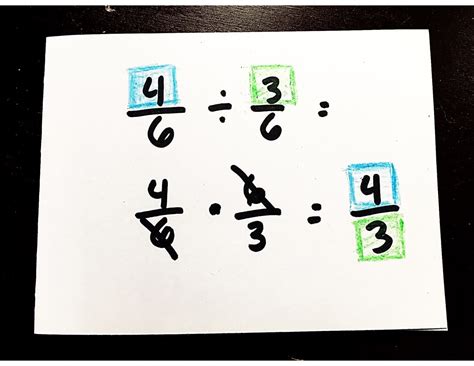 4/6 ÷ 3/6 =
4/6 · 6/3 = 4/3